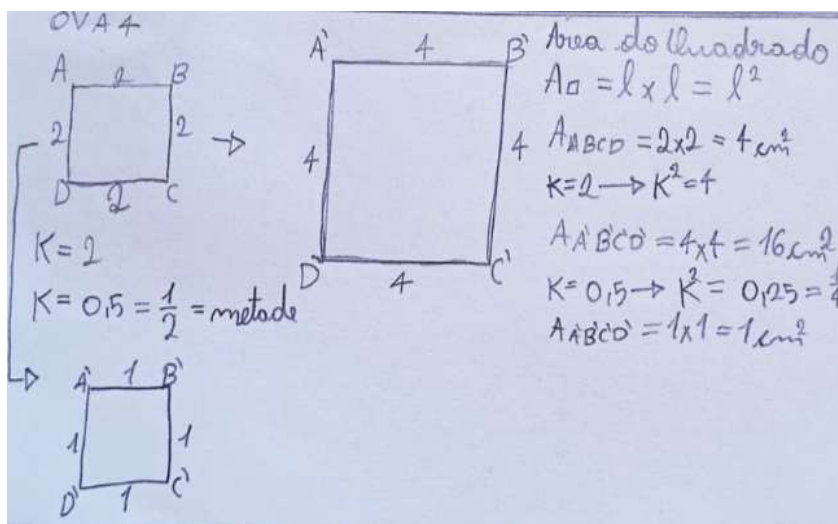 OVA 4
A 2 B
2 2
D 2 C
K = 2
K = 0,5 = 1/2 = metade
A' 4 B'
4 4
D' 4 C'
A' 1 B'
1 1
D' 1 C'
Área do Quadrado
A□ = l x l = l²
AABCD = 2x2 = 4cm²
K=2 → K²=4
AA'B'C'D' = 4x4 = 16cm²
K=0,5 → K² = 0,25 = 1/4
AA'B'C'D' = 1x1 = 1cm²